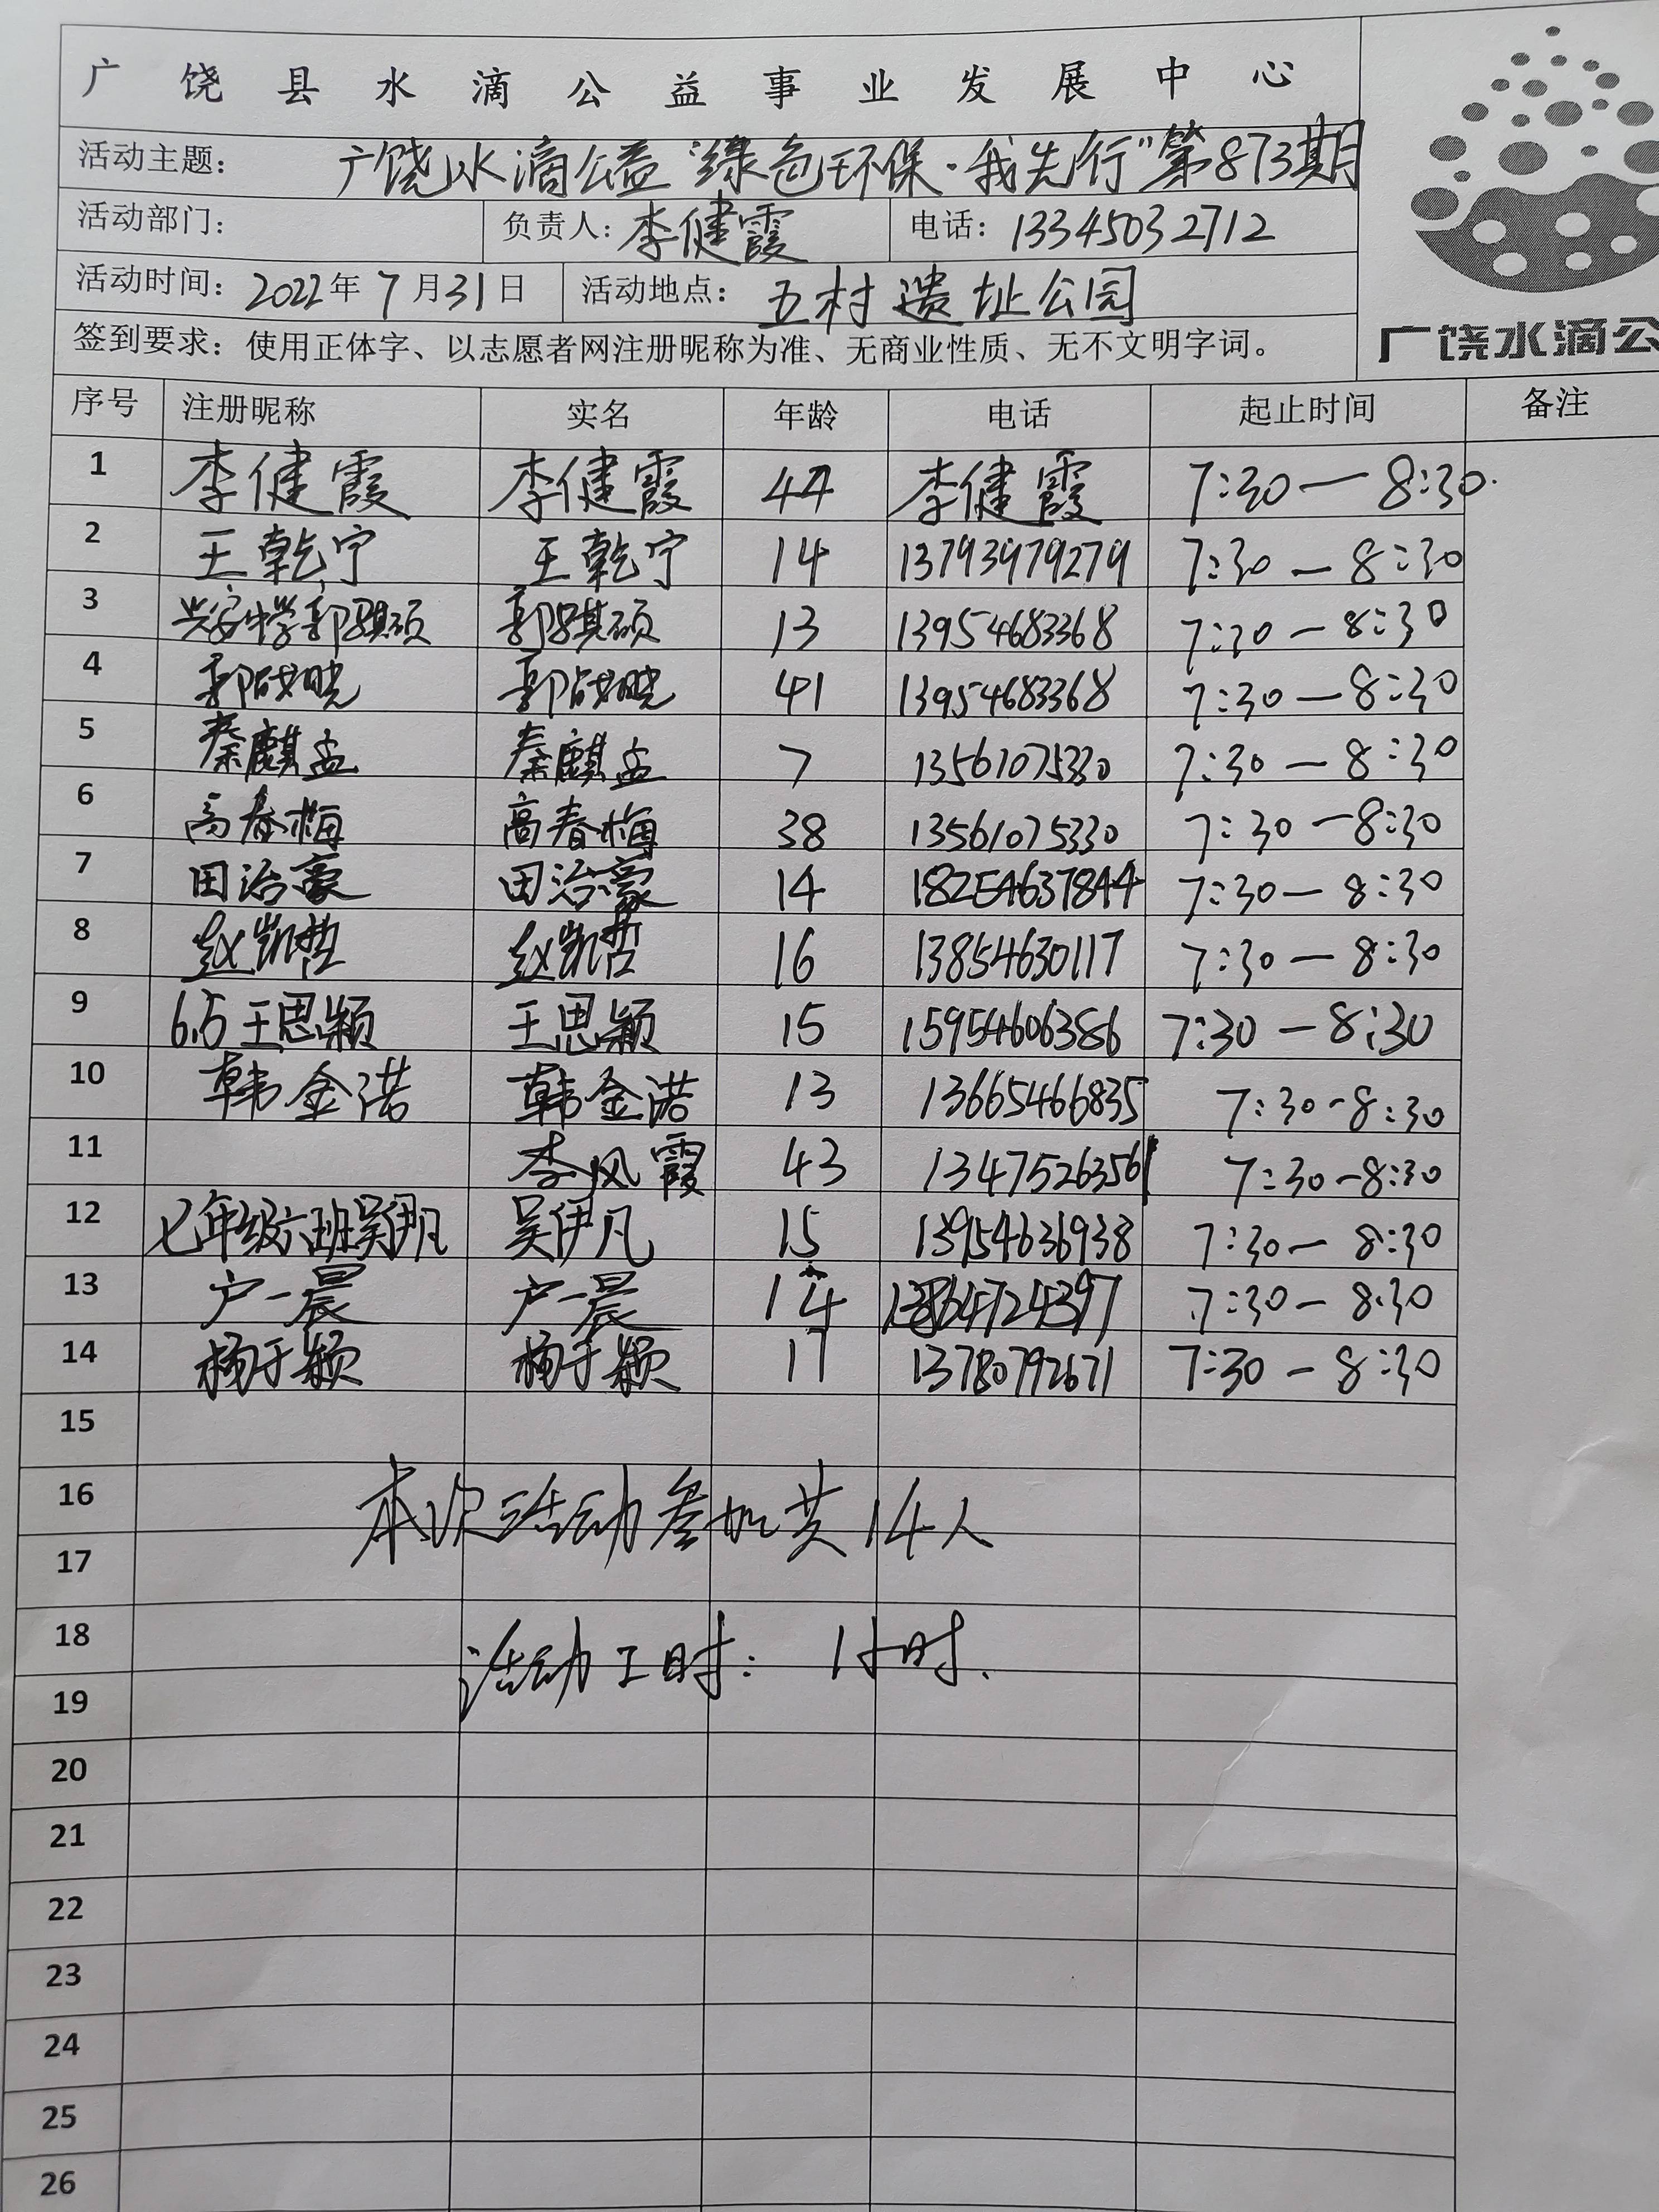 广饶县水滴公益事业发展中心
活动主题: 广饶水滴公益"绿色环保·我先行"第873期
活动部门: 负责人: 李健霞 电话: 13345032712
活动时间: 2022年 7月31日 活动地点: 五村遗址公园
签到要求: 使用正体字、以志愿者网注册昵称为准、无商业性质、无不文明字词。
广饶水滴公
序号 注册昵称 实名 年龄 电话 起止时间 备注
1 李健霞 李健霞 44 李健霞 7:30—8:30.
2 王乾宁 王乾宁 14 13793979279 7:30—8:30
3 兴安中学郭骐硕 郭骐硕 13 13954683368 7:30—8:30
4 郭战晓 郭战晓 41 13954683368 7:30—8:30
5 秦麒孟 秦麒孟 7 13561075330 7:30—8:30
6 高春梅 高春梅 38 13561075330 7:30—8:30
7 田治豪 田治豪 14 18254637844 7:30—8:30
8 赵凯哲 赵凯哲 16 13854630117 7:30—8:30
9 6.5王思颖 王思颖 15 15954606386 7:30—8:30
10 韩金诺 韩金诺 13 13665466835 7:30-8:30
11 李风霞 43 13475263561 7:30-8:30
12 七年级六班吴伊凡 吴伊凡 15 13954636938 7:30—8:30
13 户一晨 户一晨 14 7:30—8:30
14 杨于颖 杨于颖 17 13780792671 7:30—8:30
15
16
本次活动参加共14人
17
18
活动工时: 1小时.
19
20
21
22
23
24
25
26